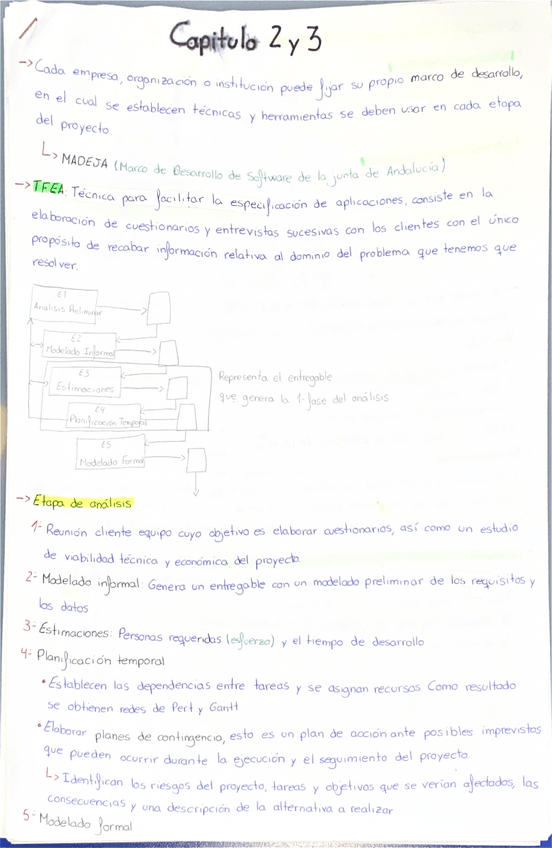 Capitulo 2 y 3
-> Cada empresa, organización o institución puede fijar su propio marco de desarrollo,
en el cual se establecen técnicas y herramientas se deben usar en cada etapa
del proyecto.
↳ MADEJA (Marco de Desarrollo de Software de la junta de Andalucía)
-> TFEA: Técnica para facilitar la especificación de aplicaciones, consiste en la
elaboración de cuestionarios y entrevistas sucesivas con los clientes con el único
propósito de recabar información relativa al dominio del problema que tenemos que
resolver.
E1
Analisis Preliminar
E2
Modelado Informal
E3
Estimaciones
Representa el entregable
que genera la 1ª fase del análisis
E4
Planificación Temporal
E5
Modelado Formal
-> Etapa de análisis
1- Reunión cliente equipo cuyo objetivo es elaborar cuestionarios, así como un estudio
de viabilidad técnica y económica del proyecto.
2- Modelado informal: Genera un entregable con un modelado preliminar de los requisitos y
los datos
3- Estimaciones: Personas requeridas (esfuerzo) y el tiempo de desarrollo
4- Planificación temporal
• Establecen las dependencias entre tareas y se asignan recursos. Como resultado
se obtienen redes de Pert y Gantt
• Elaborar planes de contingencia, esto es un plan de acción ante posibles imprevistos
que pueden ocurrir durante la ejecución y el seguimiento del proyecto.
↳ Identifican los riesgos del proyecto, tareas y objetivos que se verían afectados, las
consecuencias y una descripción de la alternativa a realizar
5- Modelado formal